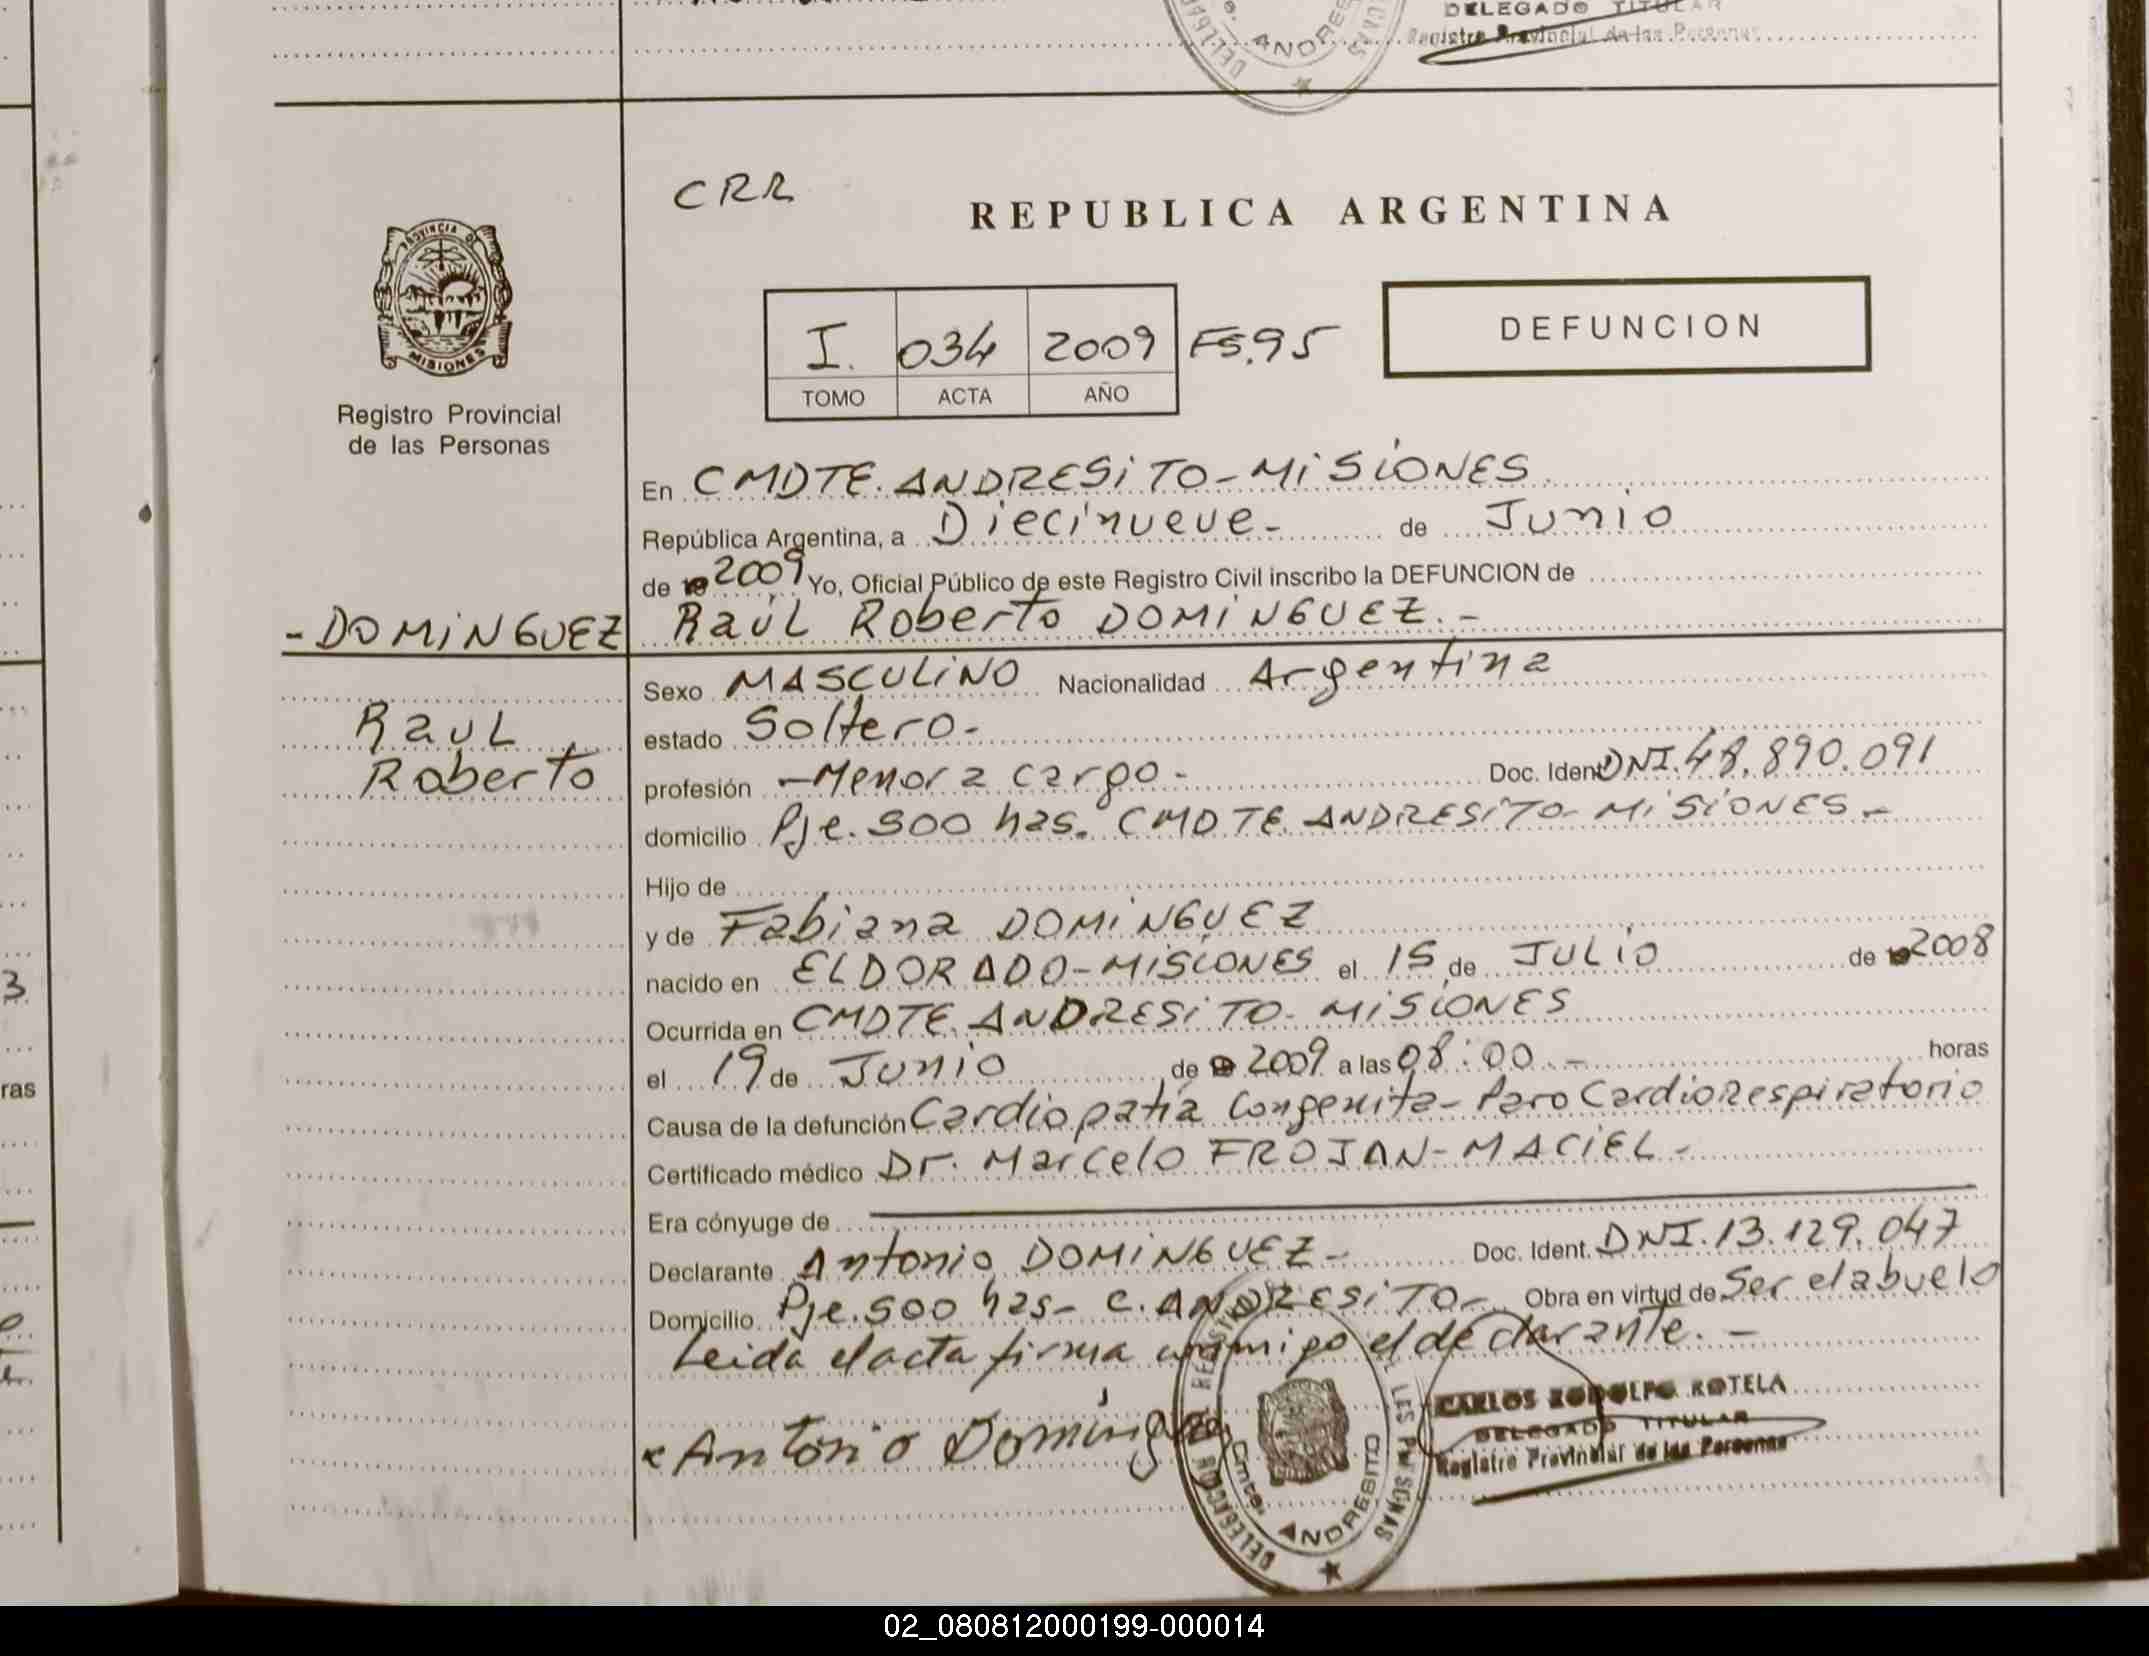 DELEGADO TITULAR
Registro Provincial de las Personas
ANDRES
CRR
REPUBLICA ARGENTINA
PROVINCIA DE
MISIONES
Registro Provincial
de las Personas
I. 034 2009 Fs.95
TOMO ACTA AÑO
DEFUNCION
En CMDTE. ANDRESITO - MISIONES
República Argentina, a Diecinueve - de Junio
de 2009 Yo, Oficial Público de este Registro Civil inscribo la DEFUNCION de
- DOMINGUEZ Raúl Roberto DOMINGUEZ. -
Sexo MASCULINO Nacionalidad Argentina
Raul
estado Soltero -
Roberto
profesión - Menor a cargo - Doc. Ident DNI. 48.890.091
domicilio Pje. 500 has. CMDTE. ANDRESITO - MISIONES -
Hijo de
y de Fabiana DOMINGUEZ
nacido en ELDORADO - MISIONES el 15 de JULIO de 2008
Ocurrida en CMDTE. ANDRESITO - MISIONES
el 19 de Junio de 2009 a las 08:00 - horas
Causa de la defunción Cardiopatía Congenita - Paro Cardiorespiratorio
Certificado médico Dr. Marcelo FROJAN - MACIEL -
Era cónyuge de
Declarante Antonio DOMINGUEZ - Doc. Ident. DNI. 13.129.047
Domicilio Pje. 500 has - C. ANDRESITO - Obra en virtud de Ser el abuelo
Leida el acta firma conmigo el declarante. -
CARLOS RODOLFO ROTELA
DELEGADO TITULAR
Registro Provincial de las Personas
Antonio Doming
Cmte. ANDRESITO
3
ras
02_080812000199-000014